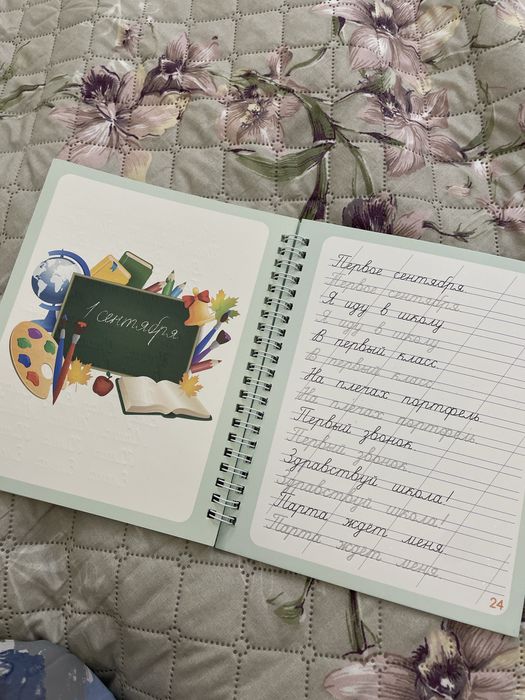 1 сентября
Первое сентября
Первое сентября
Я иду в школу
Я иду в школу
В первый класс.
В первый класс.
На плечах портфель
На плечах портфель
Первый звонок
Первый звонок
Здравствуй школа!
Здравствуй школа!
Парта ждет меня
Парта ждет меня
24